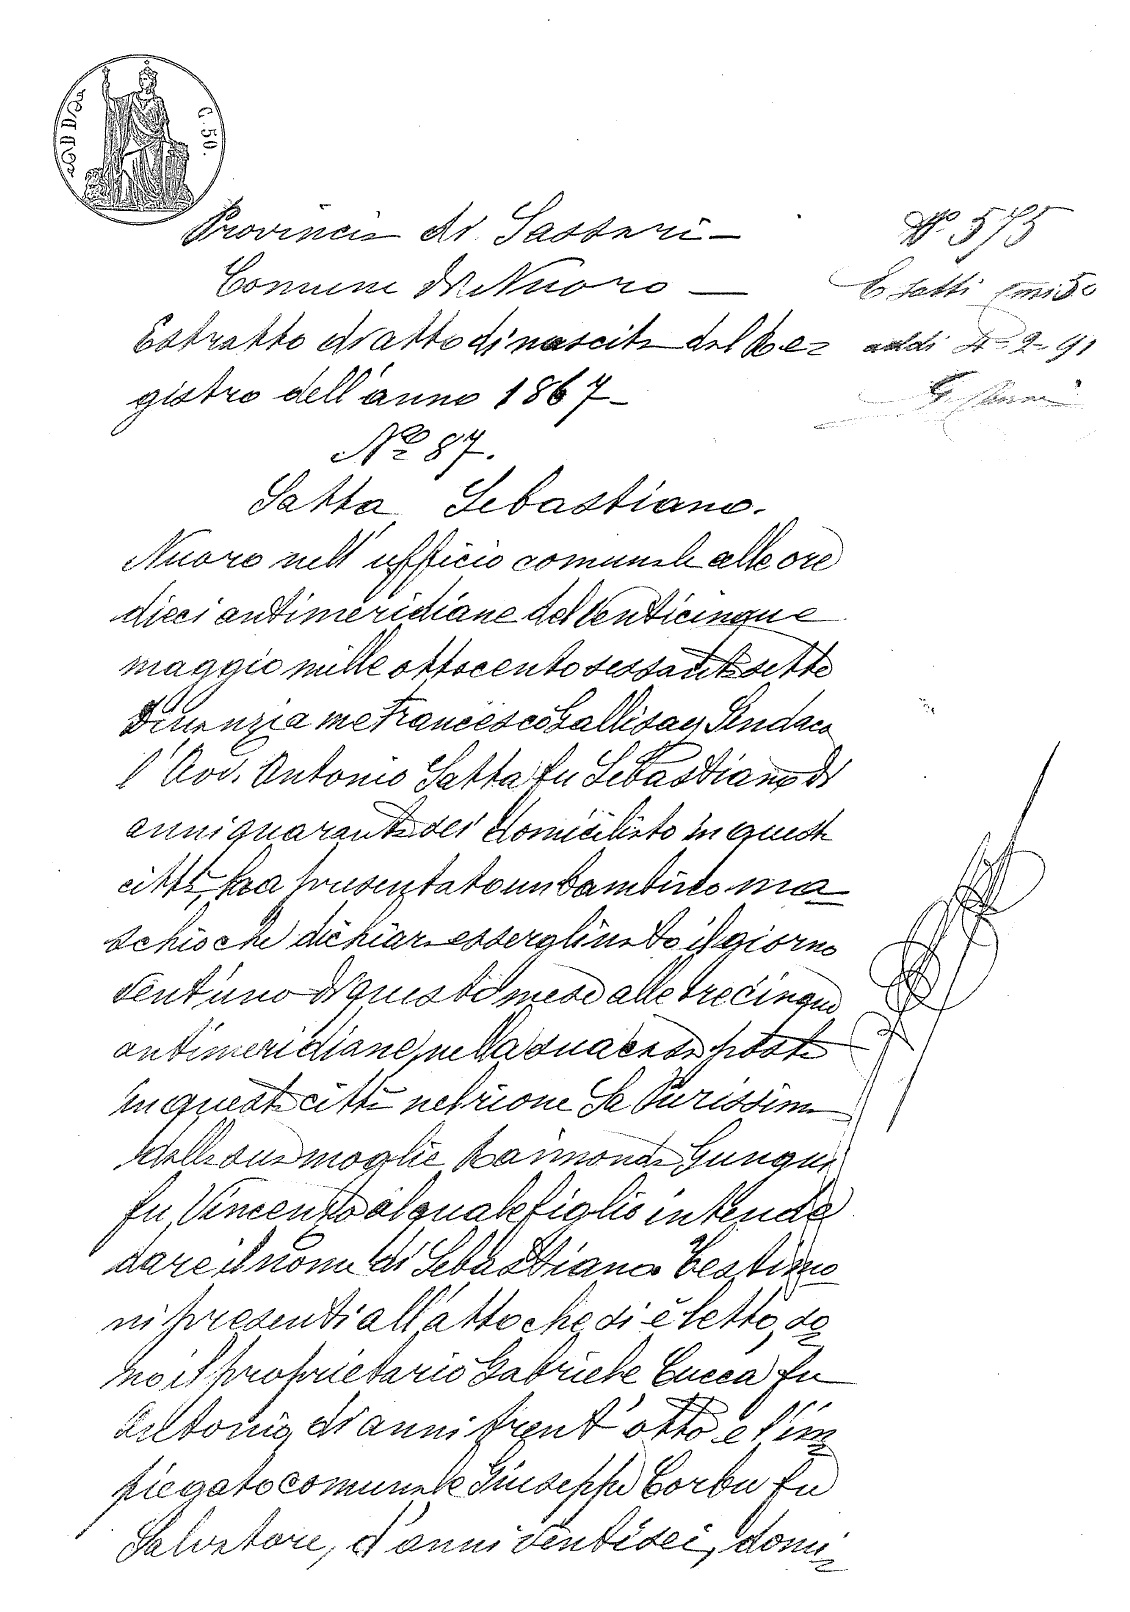 C. 50.
Provincia di Sassari —
Nº 575
Comune di Nuoro —
Esatti
Estratto di atto di nascita dal Re=
addi 4-2-91
gistro dell'anno 1867 —
Nº 87.
Satta Sebastiano.
Nuoro nell'ufficio comunale alle ore
dieci antimeridiane del venticinque
maggio mille ottocento sessanta sette
Dinanzi a me Francesco Gallisay Sindaco
l'Avv. Antonio Satta fu Sebastiano di
anni quaranta sei domiciliato in questa
città, ha presentato un bambino ma
schio che dichiara essergli nato il giorno
ventuno di questo mese alle ore cinque
antimeridiane, nella sua casa posta
in questa città nel rione Sa Purissima
dalla sua moglie Raimonda Gungui
fu Vincenzo al quale figlio intende
dare il nome di Sebastiano Testimo
ni presenti all'atto che si è letto, so=
no il proprietario Gabriele Cucca fu
Antonio, di anni trent'otto e l'im=
piegato comunale Giuseppe Corbu fu
Salvatore, d'anni ventisei, domi=